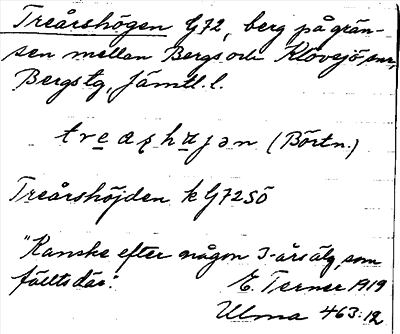 Treårshögen G72, berg på grän-
sen mellan Bergs och Klövsjö snr,
Bergs tg, Jämtl. l.
treaʂhøjən (Börtn.)
Treårshöjden k G72SÖ
"Kanske efter någon 3-årsälg, som
fällts där". E. Terner 1919
Ulma 463:12